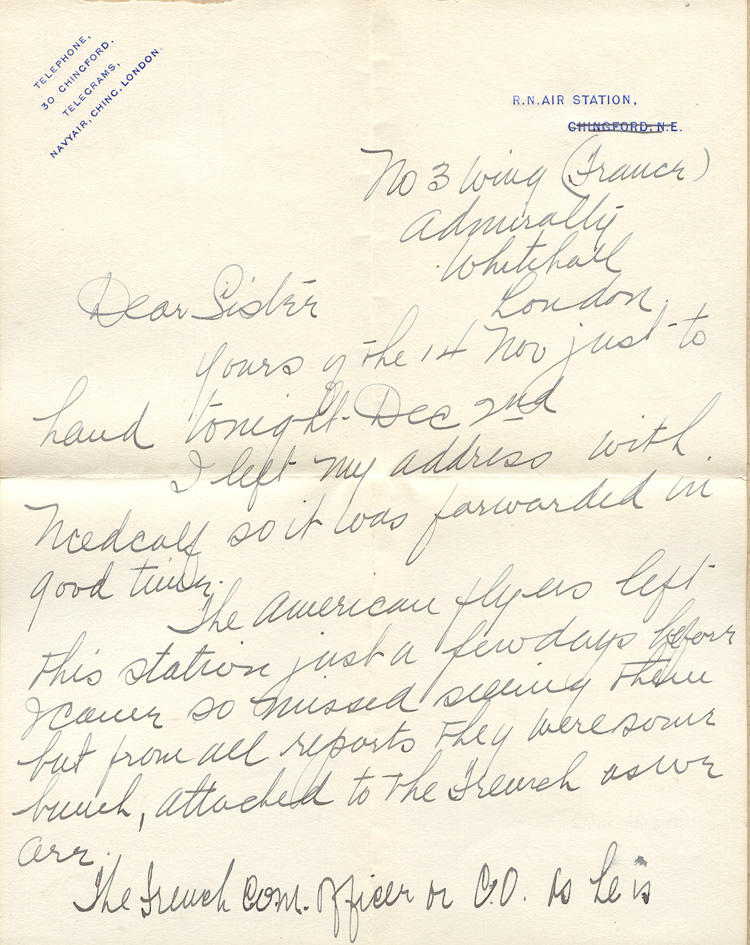 TELEPHONE,
30 CHINGFORD.
TELEGRAMS,
NAVYAIR, CHING, LONDON
R.N. AIR STATION,
CHINGFORD, N.E.
No 3 Wing (France)
Admiralty
Whitehall
London.
Dear Sister
Yours of the 14 Nov just to
hand tonight Dec 2nd
I left my address with
Medcalf so it was forwarded in
good time.
The American flyers left
this station just a few days before
I came so missed seeing them
but from all reports they were some
bunch, attached to the French as we
are.
The French Com. Officer or C.O. as he is